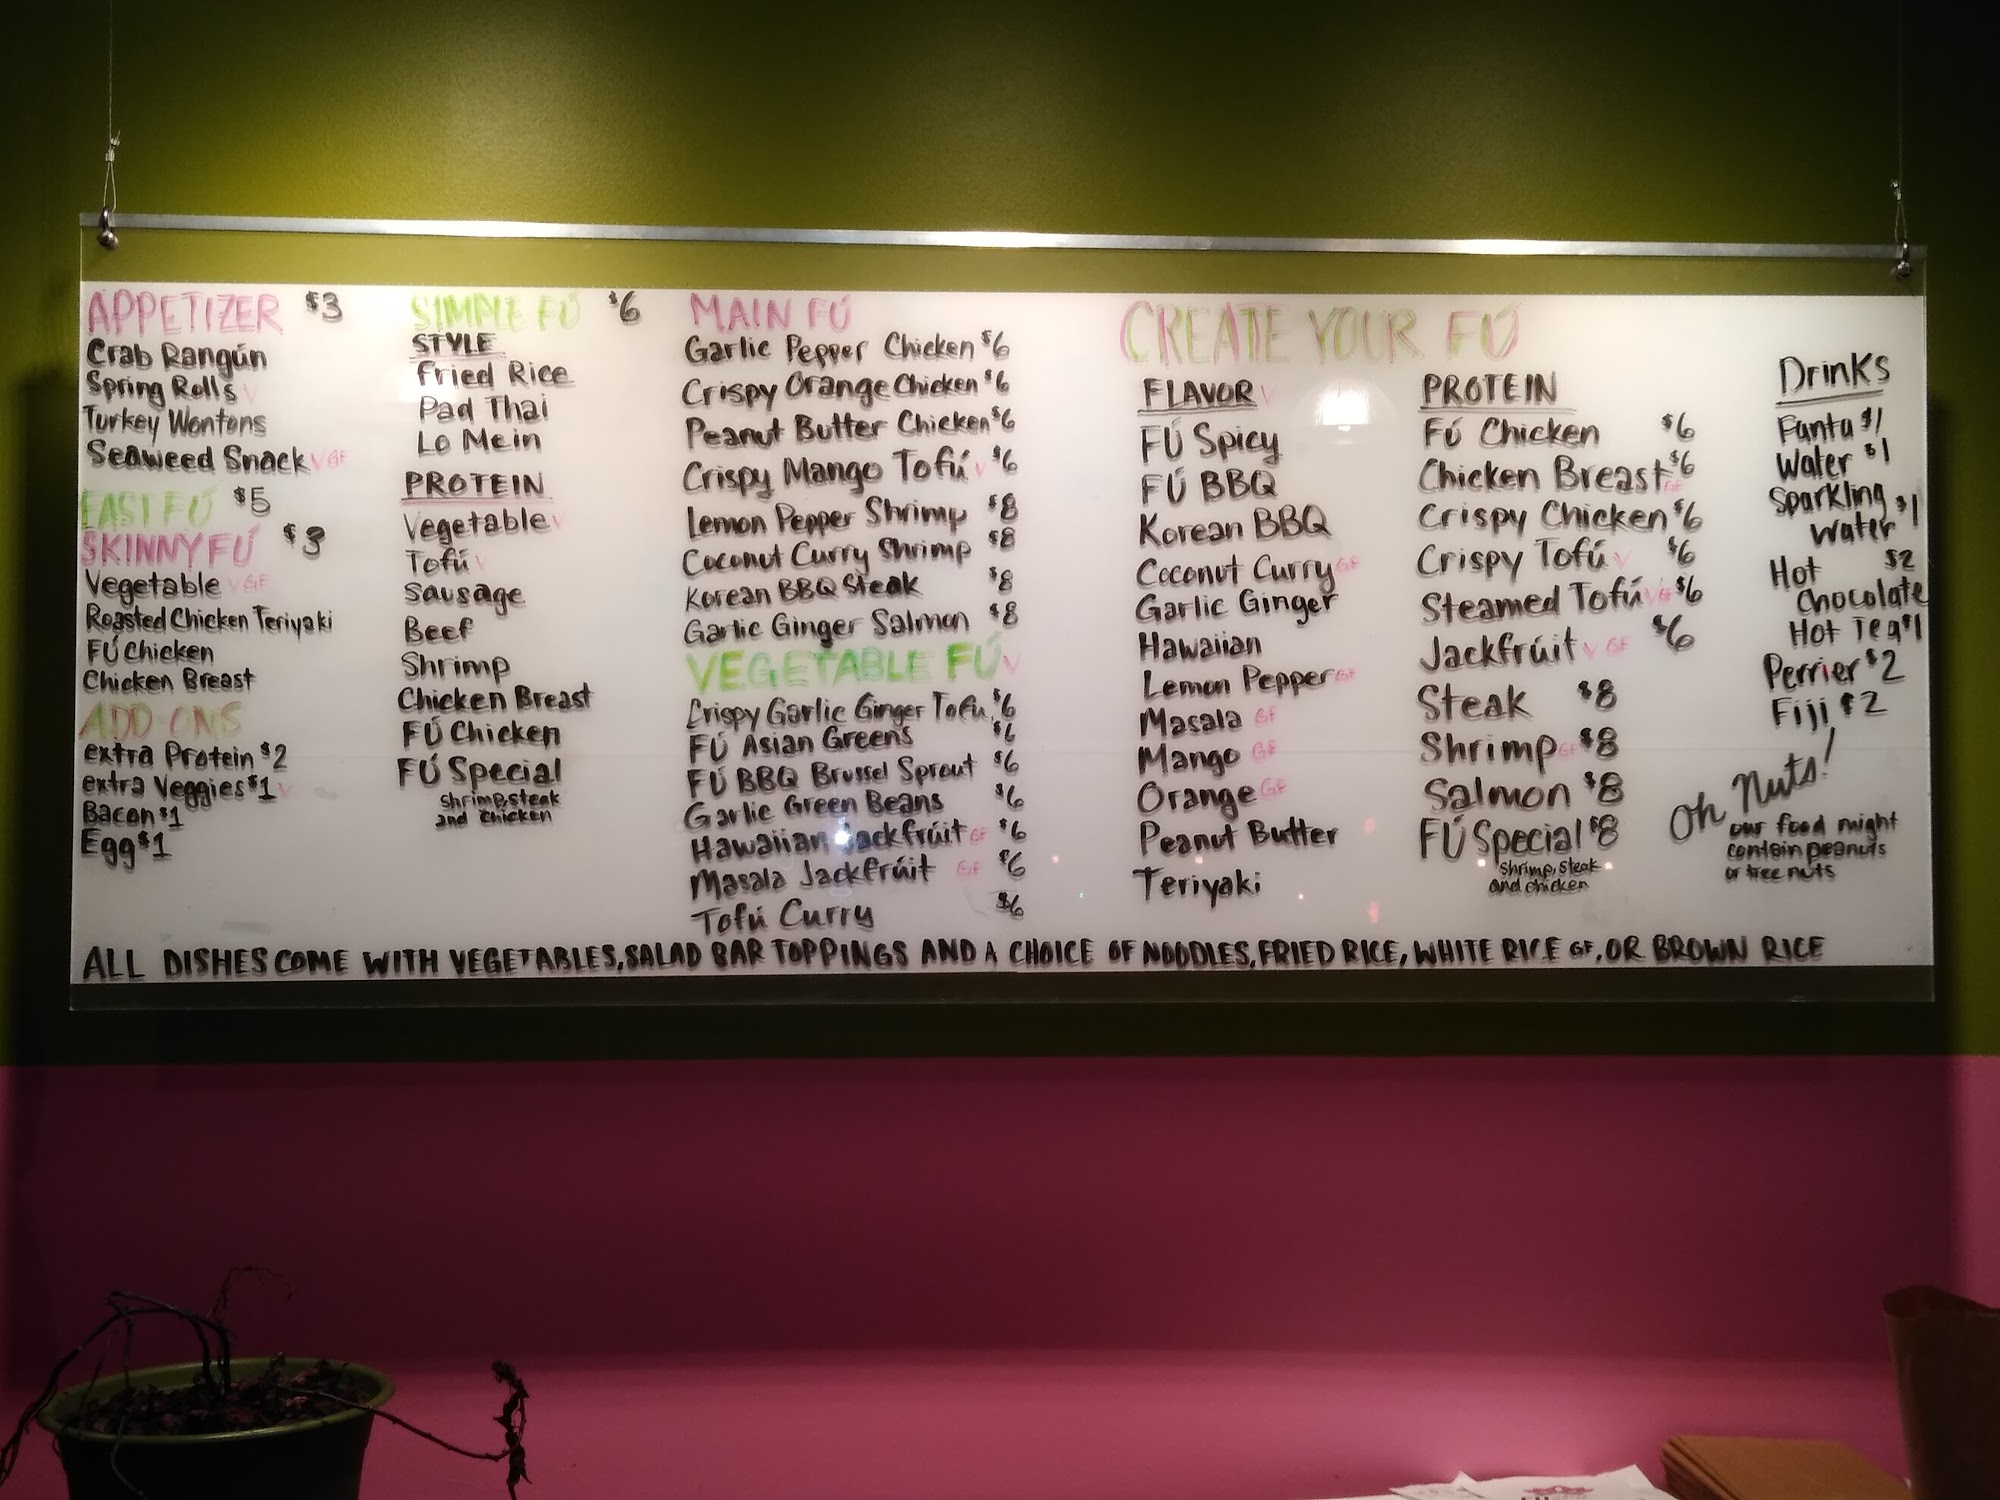 APPETIZER $3
Crab Rangún
Spring Rolls V
Turkey Wontons
Seaweed Snack V GF
FAST FÚ $5
SKINNY FÚ $3
Vegetable V GF
Roasted Chicken Teriyaki
FÚ Chicken
Chicken Breast
ADD-ONS
extra Protein $2
extra Veggies $1 V
Bacon $1
Egg $1
SIMPLE FÚ $6
STYLE
Fried Rice
Pad Thai
Lo Mein
PROTEIN
Vegetable V
Tofú V
Sausage
Beef
Shrimp
Chicken Breast
FÚ Chicken
FÚ Special
Shrimp, steak
and chicken
MAIN FÚ
Garlic Pepper Chicken $6
Crispy Orange Chicken $6
Peanut Butter Chicken $6
Crispy Mango Tofú V $6
Lemon Pepper Shrimp $8
Coconut Curry Shrimp $8
Korean BBQ Steak $8
Garlic Ginger Salmon $8
VEGETABLE FÚ V
Crispy Garlic Ginger Tofu $6
FÚ Asian Greens $6
FÚ BBQ Brussel Sprout $6
Garlic Green Beans $6
Hawaiian Jackfrúit GF $6
Masala Jackfrúit GF $6
Tofú Curry $6
CREATE YOUR FÚ
FLAVOR V
FÚ Spicy
FÚ BBQ
Korean BBQ
Coconut Curry GF
Garlic Ginger
Hawaiian
Lemon Pepper GF
Masala GF
Mango GF
Orange GF
Peanut Butter
Teriyaki
PROTEIN
FÚ Chicken $6
Chicken Breast GF $6
Crispy Chicken $6
Crispy Tofú V $6
Steamed Tofú V GF $6
Jackfrúit V GF $6
Steak $8
Shrimp GF $8
Salmon $8
FÚ Special $8
Shrimp, steak
and chicken
Drinks
Fanta $1
Water $1
Sparkling
Water $1
Hot $2
Chocolate
Hot Tea $1
Perrier $2
Fiji $2
Oh Nuts!
our food might
contain peanuts
or tree nuts
ALL DISHES COME WITH VEGETABLES, SALAD BAR TOPPINGS AND A CHOICE OF NOODLES, FRIED RICE, WHITE RICE GF, OR BROWN RICE